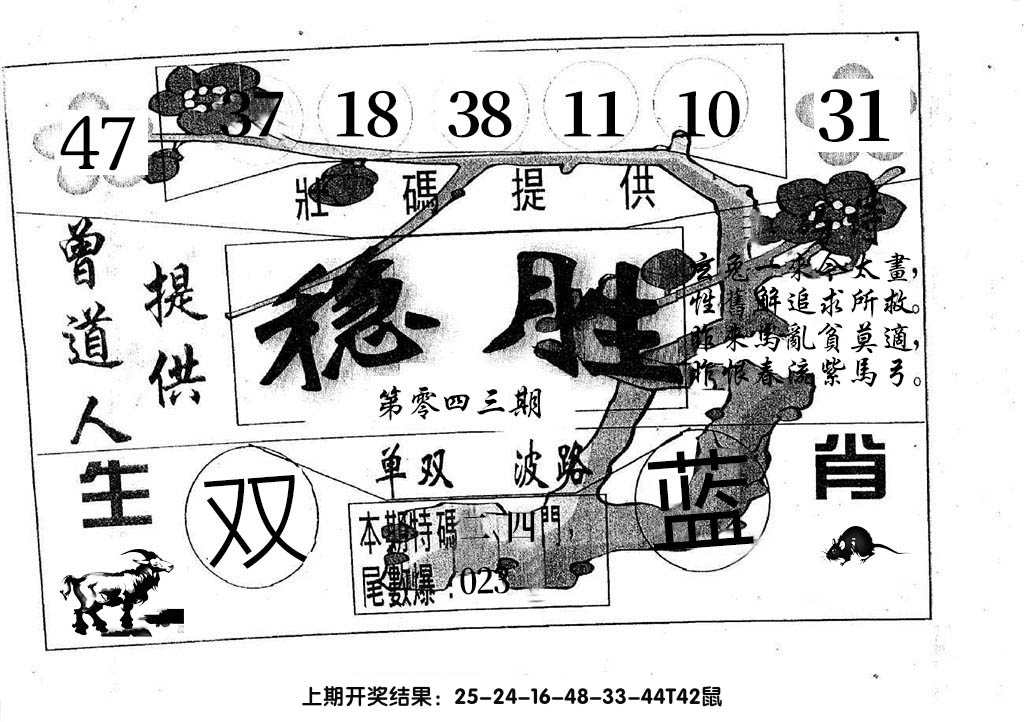 47 37 18 38 11 10 31
壯碼提供
曾道人
提供
稳胜
第零四三期
玄兔一求令太畫，
性舊解追求所救。
昨来馬亂貧莫適，
昨恨春流紫馬弓。
生肖
单双 波路
双 蓝
本期特碼二、四門，
尾數爆：023
上期开奖结果：25-24-16-48-33-44T42鼠